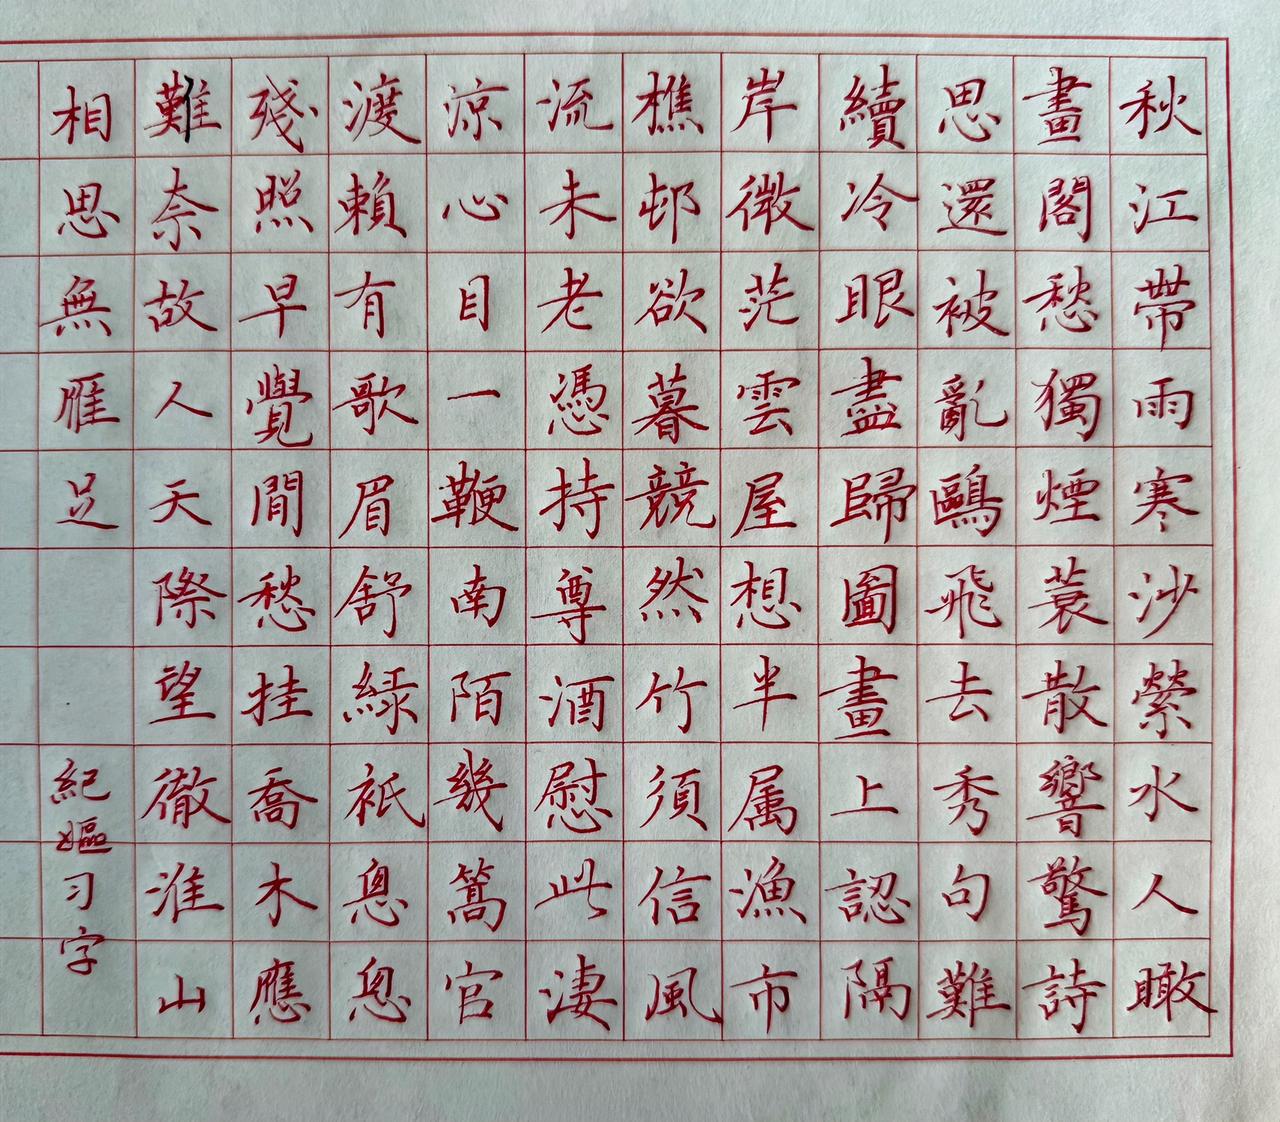 秋江帶雨寒沙縈水人瞰
畫閣愁獨煙蓑散響驚詩
思還被亂鷗飛去秀句難
續冷眼盡歸圖畫上認隔
岸微茫雲屋想半属漁市
樵邨欲暮競然竹須信風
流未老憑持尊酒慰此淒
涼心目一鞭南陌幾篙官
渡賴有歌眉舒綠衹悤悤
殘照早覺閒愁挂喬木應
難奈故人天際望徹淮山
相思無雁足
紀嫗习字